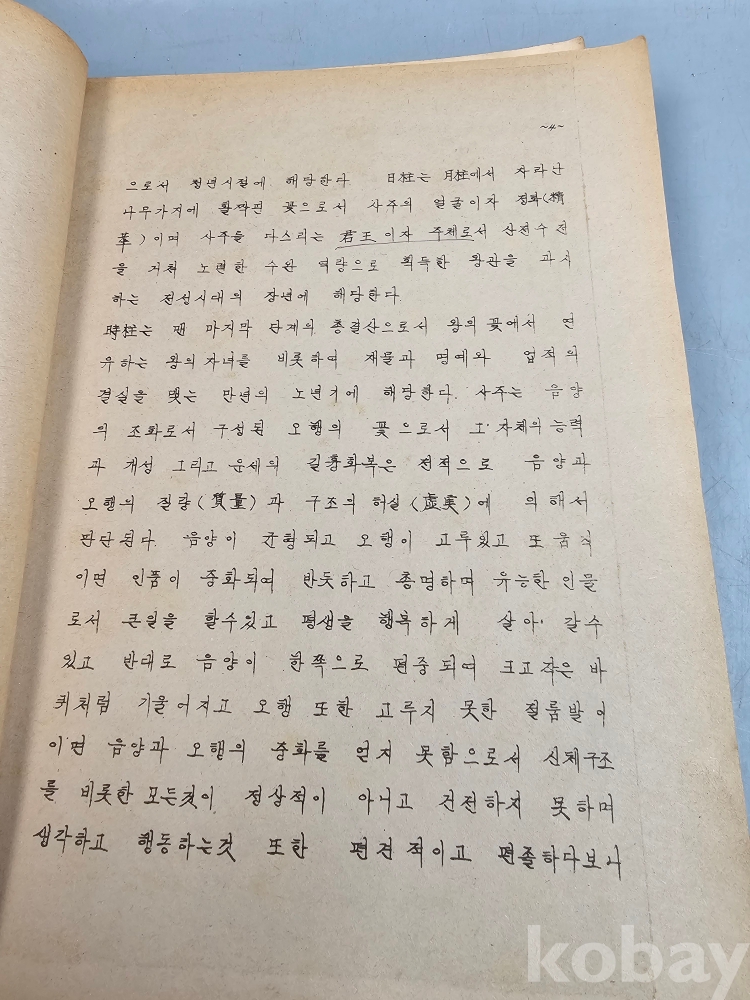 ~4~
으로서 청년시절에 해당한다. 日柱는 月柱에서 자라난
나무가지에 활짝핀 꽃으로서 사주의 얼굴이자 정화(精
華)이며 사주를 다스리는 君王이자 주체로서 산전수전
을 거쳐 노련한 수완 역량으로 획득한 왕관을 과시
하는 전성시대의 장년에 해당한다.
時柱는 맨 마지막 단계의 총결산으로서 왕의 꽃에서 연
유하는 왕의 자녀를 비롯하여 재물과 명예와 업적의
결실을 맺는 만년의 노년기에 해당한다. 사주는 음양
의 조화로서 구성된 오행의 꽃으로서 그 자체의 능력
과 개성 그리고 운세의 길흉화복은 전적으로 음양과
오행의 질량(質量)과 구조의 허실(虛実)에 의해서
판단된다. 음양이 균형되고 오행이 고루있고 또 움직
이면 인품이 중화되여 반듯하고 총명하며 유능한 인물
로서 큰일을 할수있고 평생을 행복하게 살아 갈수
있고 반대로 음양이 한쪽으로 편중되여 크고작은 바
퀴처럼 기울어지고 오행 또한 고루지 못한 절룸발이
이면 음양과 오행의 중화를 얻지 못함으로서 신체구조
를 비롯한 모든것이 정상적이 아니고 건전하지 못하며
생각하고 행동하는것 또한 편견적이고 편졸하다보니
kobay